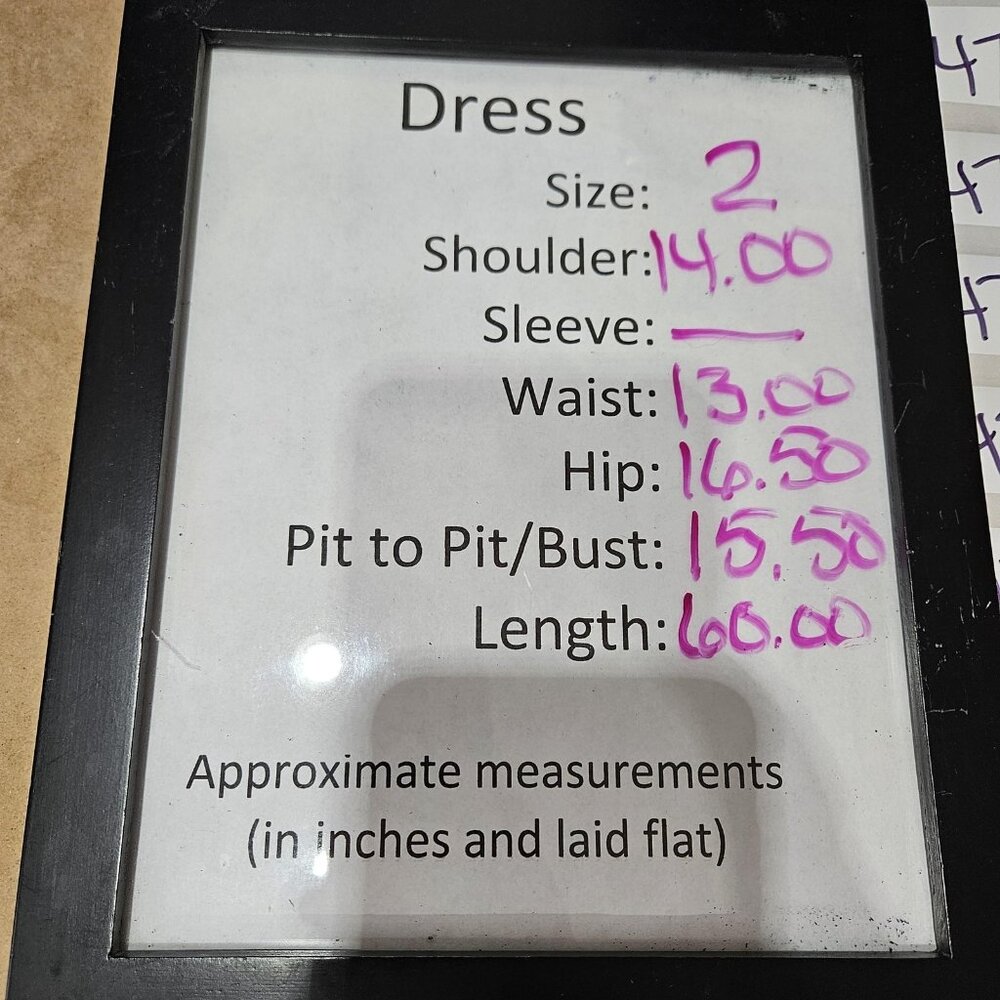 Dress
Size: 2
Shoulder: 14.00
Sleeve: —
Waist: 13.00
Hip: 16.50
Pit to Pit/Bust: 15.50
Length: 60.00
Approximate measurements
(in inches and laid flat)